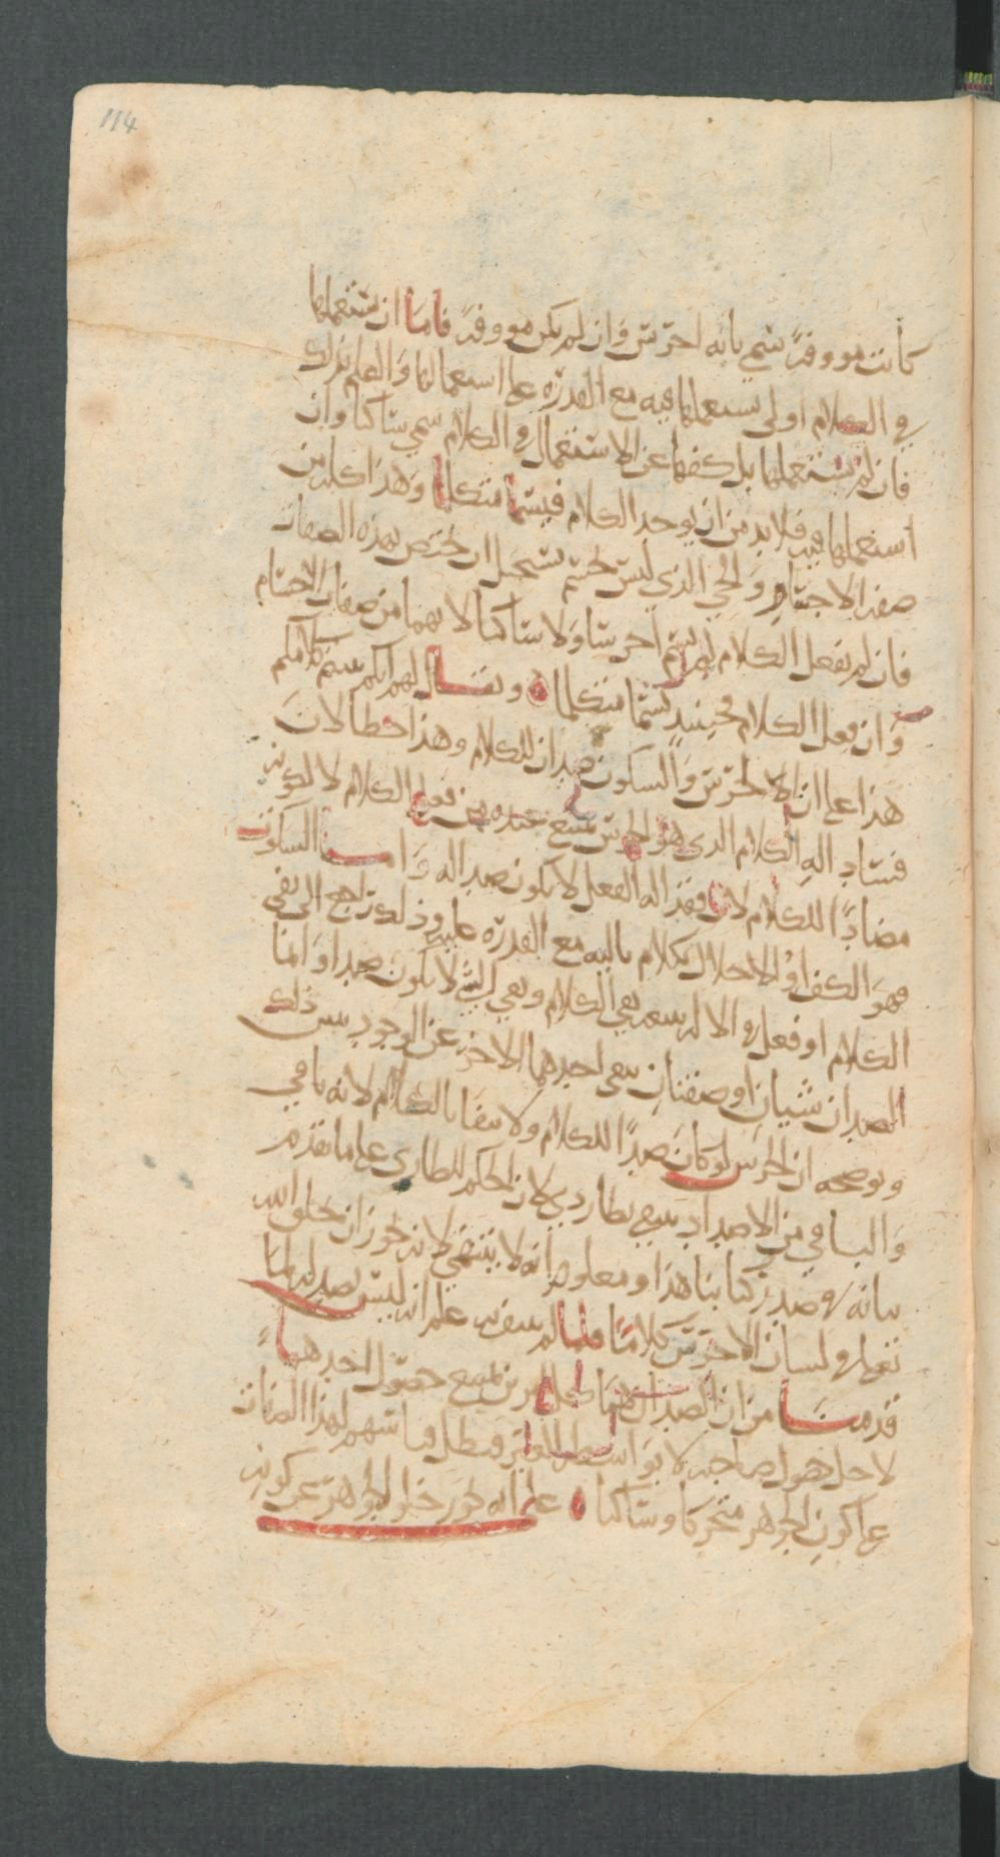 114
كانت مووفة سمي بانه اخرس وان لم يكن مووفة فاما ان يستعملها
في الكلام او لا يستعملها فيه مع القدرة على استعمالها والعلم بذلك
فان لم يستعملها بل كفها عن الاستعمال في الكلام سمي ساكتا وان
استعملها فيه فلا بد من ان يوجد الكلام فيسمى متكلما وهذا كله من
صفة الاجسام والحي الذي ليس بجسم يستحيل ان يختص بهذه الصفات
فان لم يفعل الكلام لم يسم اخرسا ولا ساكتا لانهما من صفات الاجسام
وان فعل الكلام فحينيذ يسمى متكلما ويقال لهم انكم بنيتم كلامكم
هذا على ان الاخرس والسكوت ضدان للكلام وهذا خطا لان
فساد اله الكلام الذي هو الخرس يمتنع عنده من فعل الكلام لا لكونه
مضادا للكلام لان فقد اله الفعل لا يكون ضدا له واما السكوت
فهو الكف او الاخلال بكلام باليه مع القدرة عليه وذلك راجع الى نفي
الكلام او فعل في الالة نفي الكلام ونفي الشي لا يكون ضدا وانما
الضدان شيان او صفتان ينفي احدهما الاخر عن الوجود يبين ذلك
ويوضحه ان الخرس لو كان ضدا للكلام ولا ينفا بالكلام لانه باقي
والباقي من الاضداد ينتفي بطاردي لان الحكم للطاري على ما تقدم
بيانه في صدر كتابنا هذا ومعلوم انه لا ينتفي لانه يجوز ان يخلق الله
تعالى في لسان الاخرس كلاما فلما لم ينفه علم انه ليس بضد له لما
قدمنا من ان الضدان هما يمتنع حصول احدهما
لاجل حصول صاحبه لا بواسطة فبطل قياسهم لهذا الصفات
على كون الجوهر متحركا وساكنا على انه يجوز خلو الجواهر عن كونه